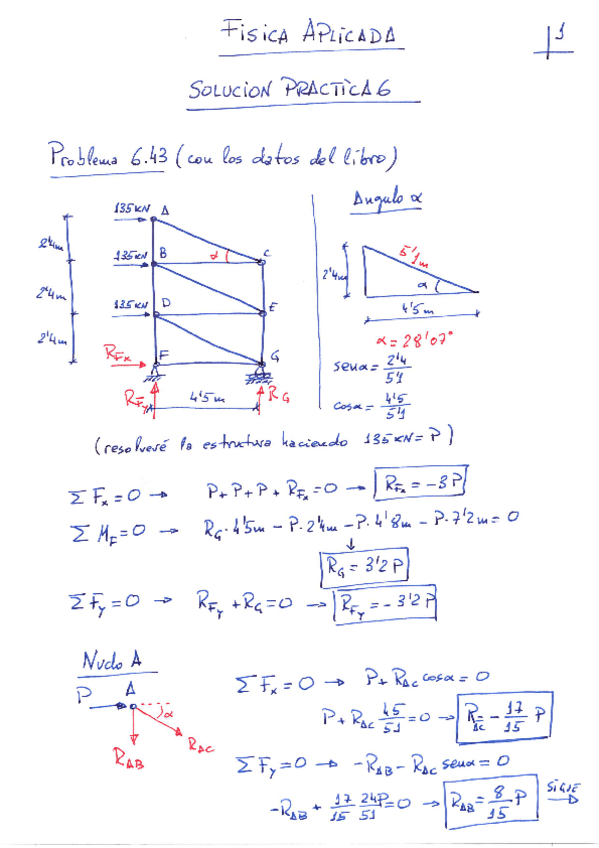 FISICA APLICADA
1
SOLUCION PRACTICA 6
Problema 6.43 (con los datos del libro)
Angulo α
135 KN A
2'4m
α C
135 KN B
2'4m
135 KN D E
2'4m
R_Fx F G
R_Fy 4'5m R_G
5'1m
2'4m α
4'5m
α = 28'07°
senα = 2'4/5'1
cosα = 4'5/5'1
(resolveré la estructura haciendo 135KN = P)
ΣFx = 0 → P + P + P + R_Fx = 0 → R_Fx = -3P
ΣM_F = 0 → R_G·4'5m - P·2'4m - P·4'8m - P·7'2m = 0
↓
R_G = 3'2P
ΣFy = 0 → R_Fy + R_G = 0 → R_Fy = -3'2P
Nudo A
P A α
R_AB R_AC
ΣFx = 0 → P + R_AC cosα = 0
P + R_AC 45/51 = 0 → R_AC = -17/15 P
ΣFy = 0 → -R_AB - R_AC senα = 0
-R_AB + 17/15 24P/51 = 0 → R_AB = 8/15 P
SIGUE →